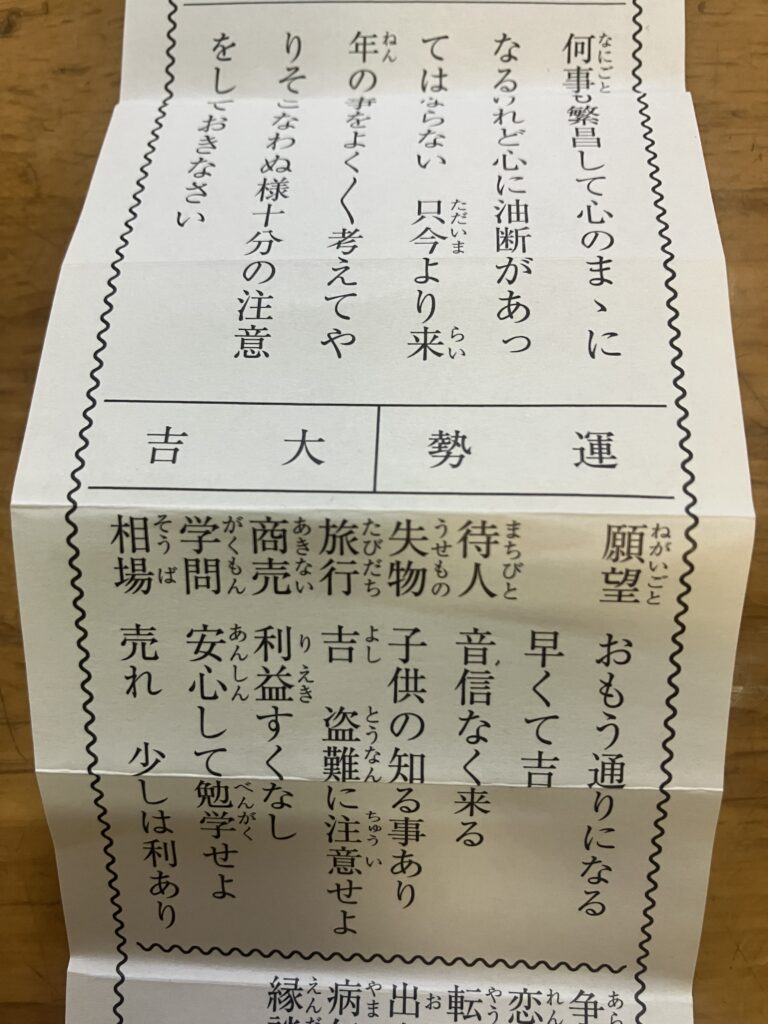 何事も繁昌して心のまゝに
なるけれど心に油断があっ
てはならない 只今より来
年の事をよく〱考えてや
りそこなわぬ様十分の注意
をしておきなさい
運勢 大吉
願望 おもう通りになる
早くて吉
待人 音信なく来る
失物 子供の知る事あり
旅行 吉 盗難に注意せよ
商売 利益すくなし
学問 安心して勉学せよ
相場 売れ 少しは利あり
争
恋
転
出
病
縁